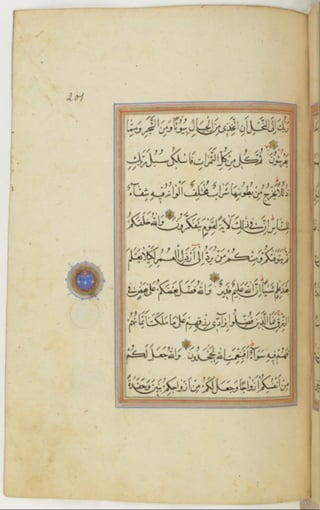 201
ربك الى النحل ان اتخذى من الجبال بيوتا ومن الشجر ومما
يعرشون ثم كلى من كل الثمرات فاسلكى سبل ربك
ذللا يخرج من بطونها شراب مختلف الوانه فيه شفاء
للناس ان فى ذلك لاية لقوم يتفكرون والله خلقكم
ثم يتوفيكم ومنكم من يرد الى ارذل العمر لكيلا يعلم
بعد علم شيئا ان الله عليم قدير والله فضل بعضكم على بعض فى
الرزق فما الذين فضلوا برادى رزقهم على ما ملكت ايمانهم
فهم فيه سواء افبنعمت الله يجحدون والله جعل لكم
من انفسكم ازواجا وجعل لكم من ازواجكم بنين وحفدة